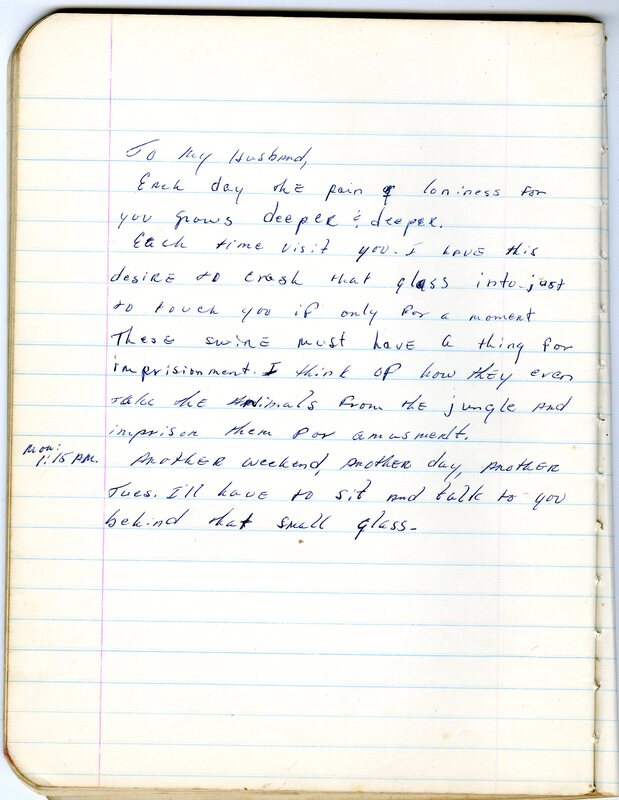 To My Husband,
Each day the pain of loniness for
you grows deeper & deeper.
Each time visit you. I have this
desire to crash that glass into just
to touch you if only for a moment
These swine must have a thing for
imprisionment. I think of how they even
take the Animals from the jungle and
imprison them for amusment.
Mon:
1:15 AM.
Another weekend, another day, another
Tues. I'll have to sit and talk to you
behind that small glass.